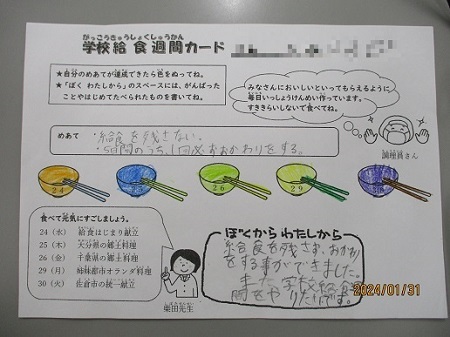 がっこうきゅうしょくしゅうかん
学校給食週間カード
★自分のめあてが達成できたら色をぬってね。
★「ぼく わたしから」のスペースには、がんばった
ことやはじめてたべられたものを書いてね。
みなさんにおいしいといってもらえるように
毎日いっしょうけんめい作っています。
すききらいしないで食べてね。
調理員さん
めあて
・給食を残さない。
・5日間のうち、1回必ずおかわりをする。
24
25
26
29
30
食べて元気にすごしましょう。
24(水) 給食はじまり献立
25(木) 大分県の郷土料理
26(金) 千葉県の郷土料理
29(月) 姉妹都市オランダ料理
30(火) 佐倉市の統一献立
柴田先生
ぼくから わたしから
給食を残さず、おかわり
をする事ができました。
また、学校給食週
間をやりたいです。
2024/01/31